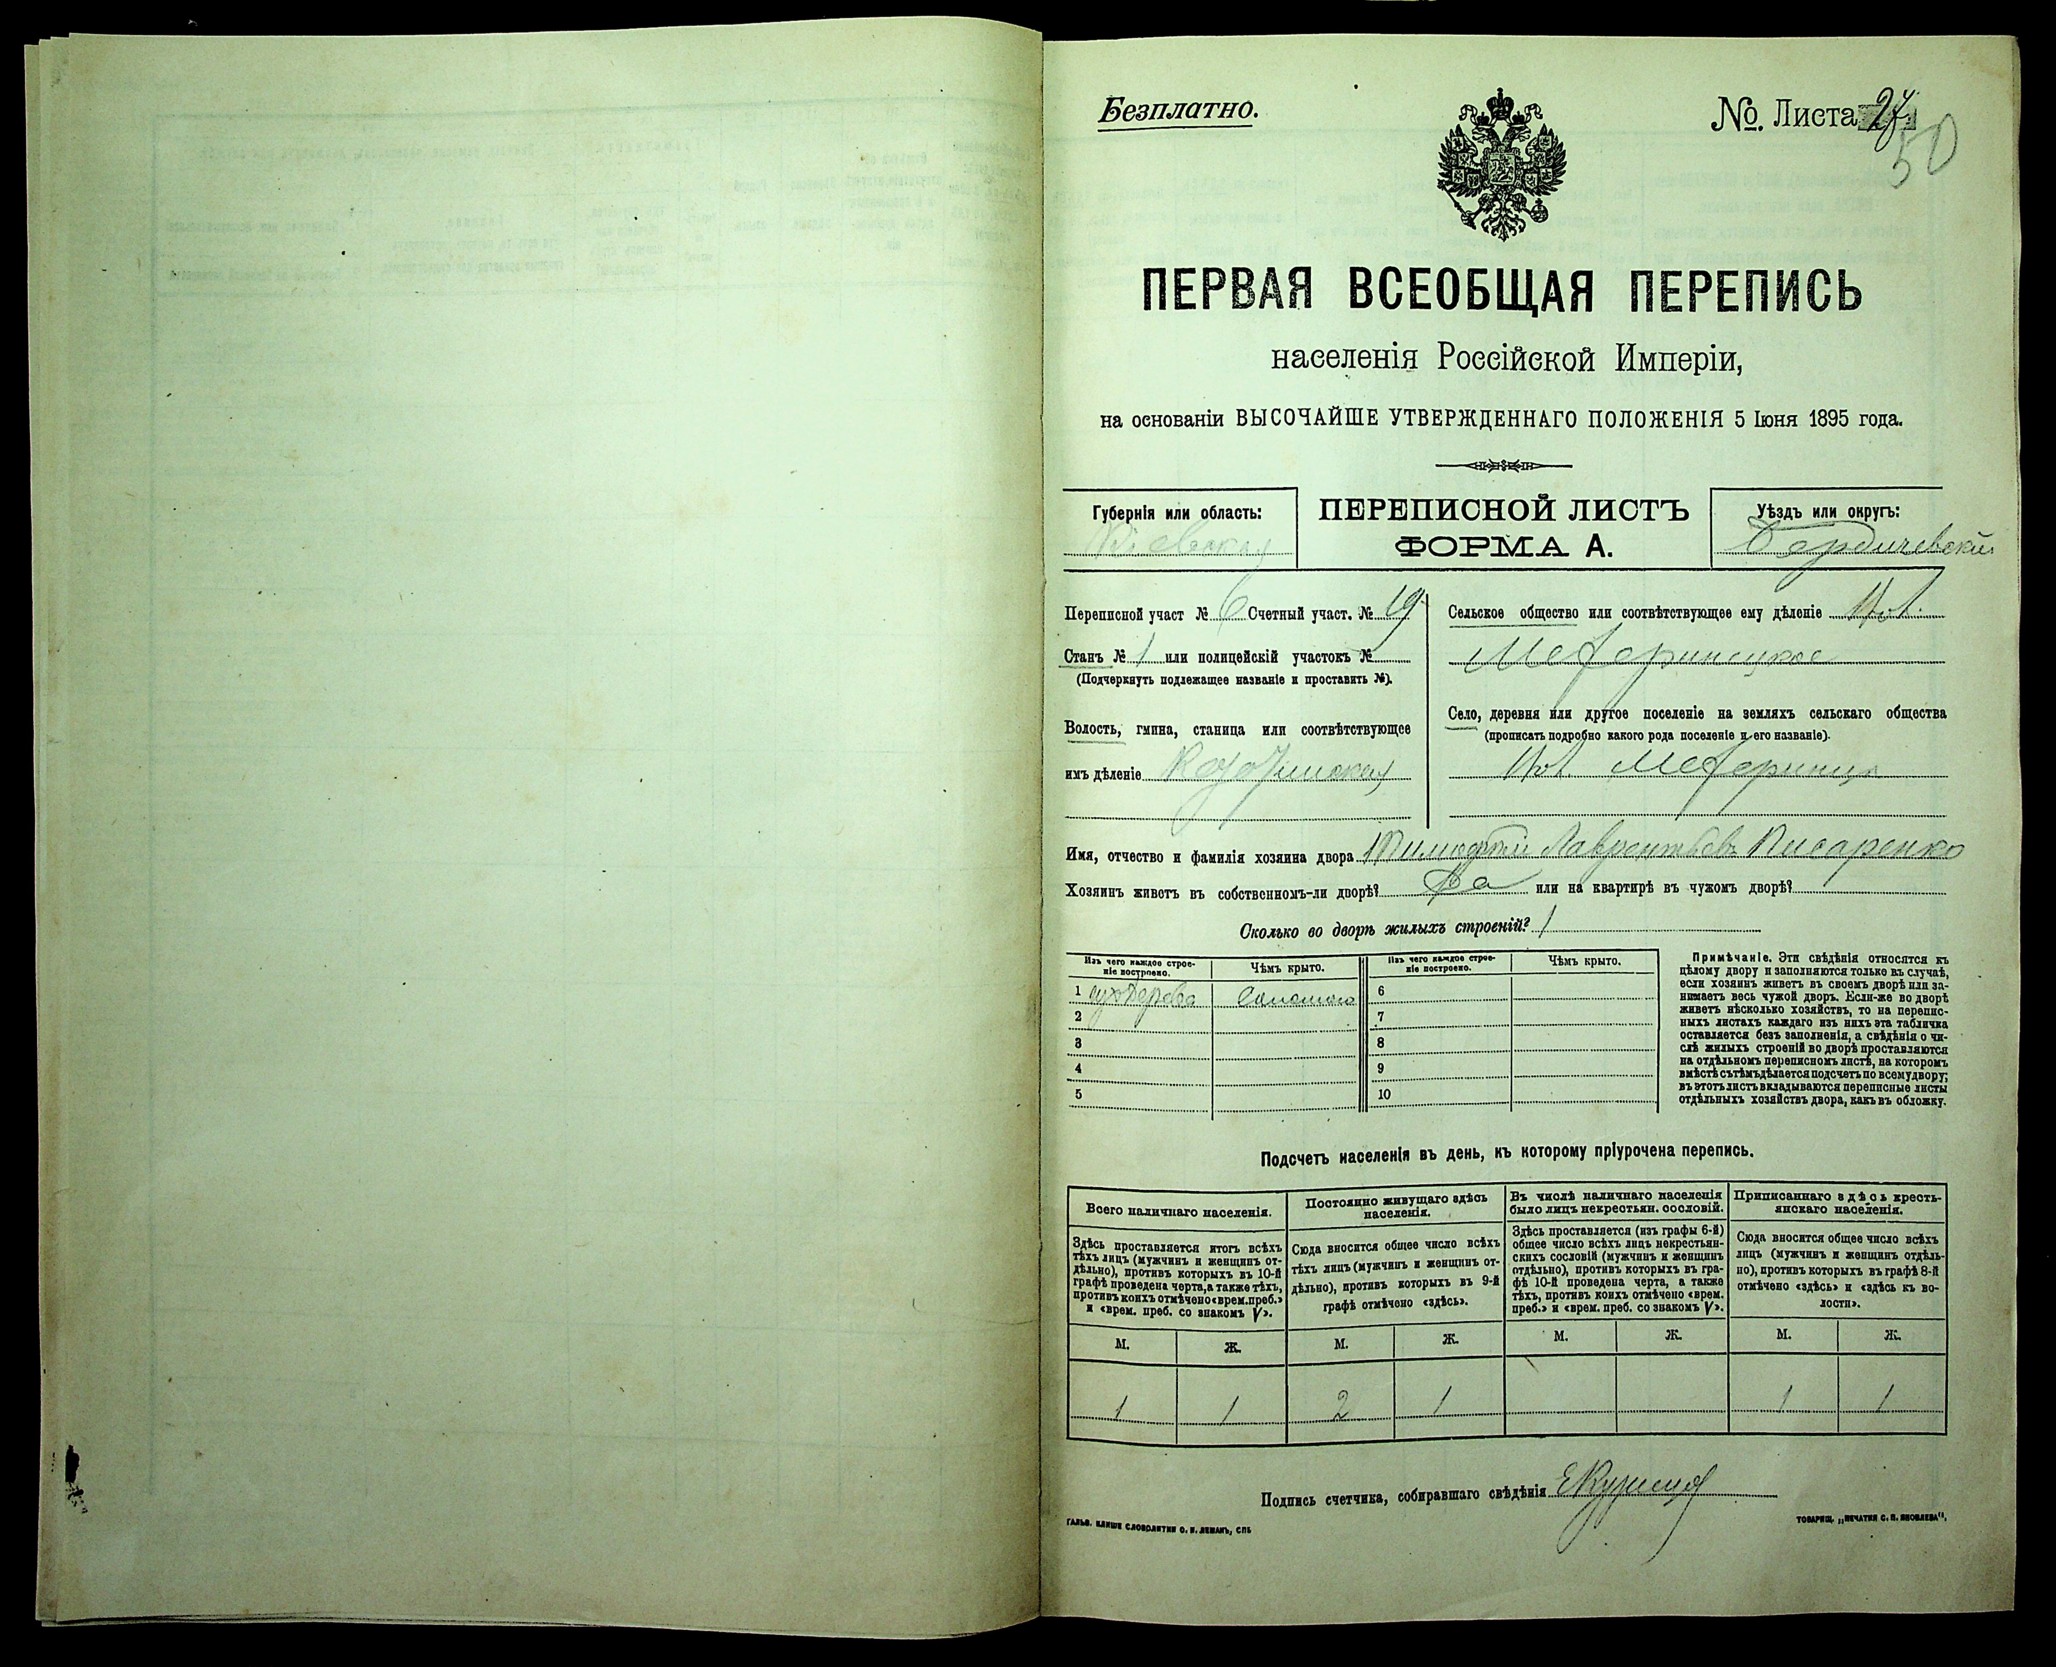 Безплатно.
№. Листа 24
50
ПЕРВАЯ ВСЕОБЩАЯ ПЕРЕПИСЬ
населенія Россійской Имперіи,
на основаніи ВЫСОЧАЙШЕ УТВЕРЖДЕННАГО ПОЛОЖЕНІЯ 5 Іюня 1895 года.
Губернія или область:
Кіевская
ПЕРЕПИСНОЙ ЛИСТЪ
ФОРМА А.
Уѣздъ или округъ:
Бердичевскій
Переписной участ № 6 Счетный участ. № 19
Станъ № 1 или полицейскій участокъ №
(Подчеркнуть подлежащее названіе и проставить №).
Волость, гмина, станица или соотвѣтствующее
имъ дѣленіе
Сельское общество или соотвѣтствующее ему дѣленіе
Село, деревня или другое поселеніе на земляхъ сельскаго общества
(прописать подробно какого рода поселеніе и его названіе).
Имя, отчество и фамилія хозяина двора Тимофтей Лаврентьевъ Писаренко
Хозяинъ живетъ въ собственномъ-ли дворѣ? Да или на квартирѣ въ чужомъ дворѣ?
Сколько во дворѣ жилыхъ строеній? 1
Изъ чего каждое строе-
ніе построено.
Чѣмъ крыто.
Изъ чего каждое строе-
ніе построено.
Чѣмъ крыто.
1 изъ дерева соломою 6
2 7
3 8
4 9
5 10
Примѣчаніе. Эти свѣдѣнія относятся къ
цѣлому двору и заполняются только въ случаѣ,
если хозяинъ живетъ въ своемъ дворѣ или за-
нимаетъ весь чужой дворъ. Если-же во дворѣ
живетъ нѣсколько хозяйствъ, то на перепис-
ныхъ листахъ каждаго изъ нихъ эта табличка
оставляется безъ заполненія, а свѣдѣнія о чи-
слѣ жилыхъ строеній во дворѣ проставляются
на отдѣльномъ переписномъ листѣ, на которомъ
вмѣстѣ съ тѣмъ дѣлается подсчетъ по всему двору;
въ этотъ листъ вкладываются переписные листы
отдѣльныхъ хозяйствъ двора, какъ въ обложку.
Подсчетъ населенія въ день, къ которому пріурочена перепись.
Всего наличнаго населенія.
Здѣсь проставляется итогъ всѣхъ
тѣхъ лицъ (мужчинъ и женщинъ от-
дѣльно), противъ которыхъ въ 10-й
графѣ проведена черта, а также тѣхъ,
противъ коихъ отмѣчено «врем. преб.»
и «врем. преб. со знакомъ V».
Постоянно живущаго здѣсь
населенія.
Сюда вносится общее число всѣхъ
тѣхъ лицъ (мужчинъ и женщинъ от-
дѣльно), противъ которыхъ въ 9-й
графѣ отмѣчено «здѣсь».
Въ числѣ наличнаго населенія
было лицъ некрестьян. сословій.
Здѣсь проставляется (изъ графы 6-й)
общее число всѣхъ лицъ некрестьян-
скихъ сословій (мужчинъ и женщинъ
отдѣльно), противъ которыхъ въ гра-
фѣ 10-й проведена черта, а также
тѣхъ, противъ коихъ отмѣчено «врем.
преб.» и «врем. преб. со знакомъ V».
Приписаннаго здѣсь кресть-
янскаго населенія.
Сюда вносится общее число всѣхъ
лицъ (мужчинъ и женщинъ отдѣль-
но), противъ которыхъ въ графѣ 8-й
отмѣчено «здѣсь» и «здѣсь къ во-
лости».
М. Ж. М. Ж. М. Ж. М. Ж.
1 1 2 1 1 1
Подпись счетчика, собиравшаго свѣдѣнія
ГАЛЬВ. КЛИШЕ СЛОВОЛИТНИ О. И. ЛЕМАНЪ, СПБ
ТОВАРИЩ. „ПЕЧАТНЯ С. П. ЯКОВЛЕВА".